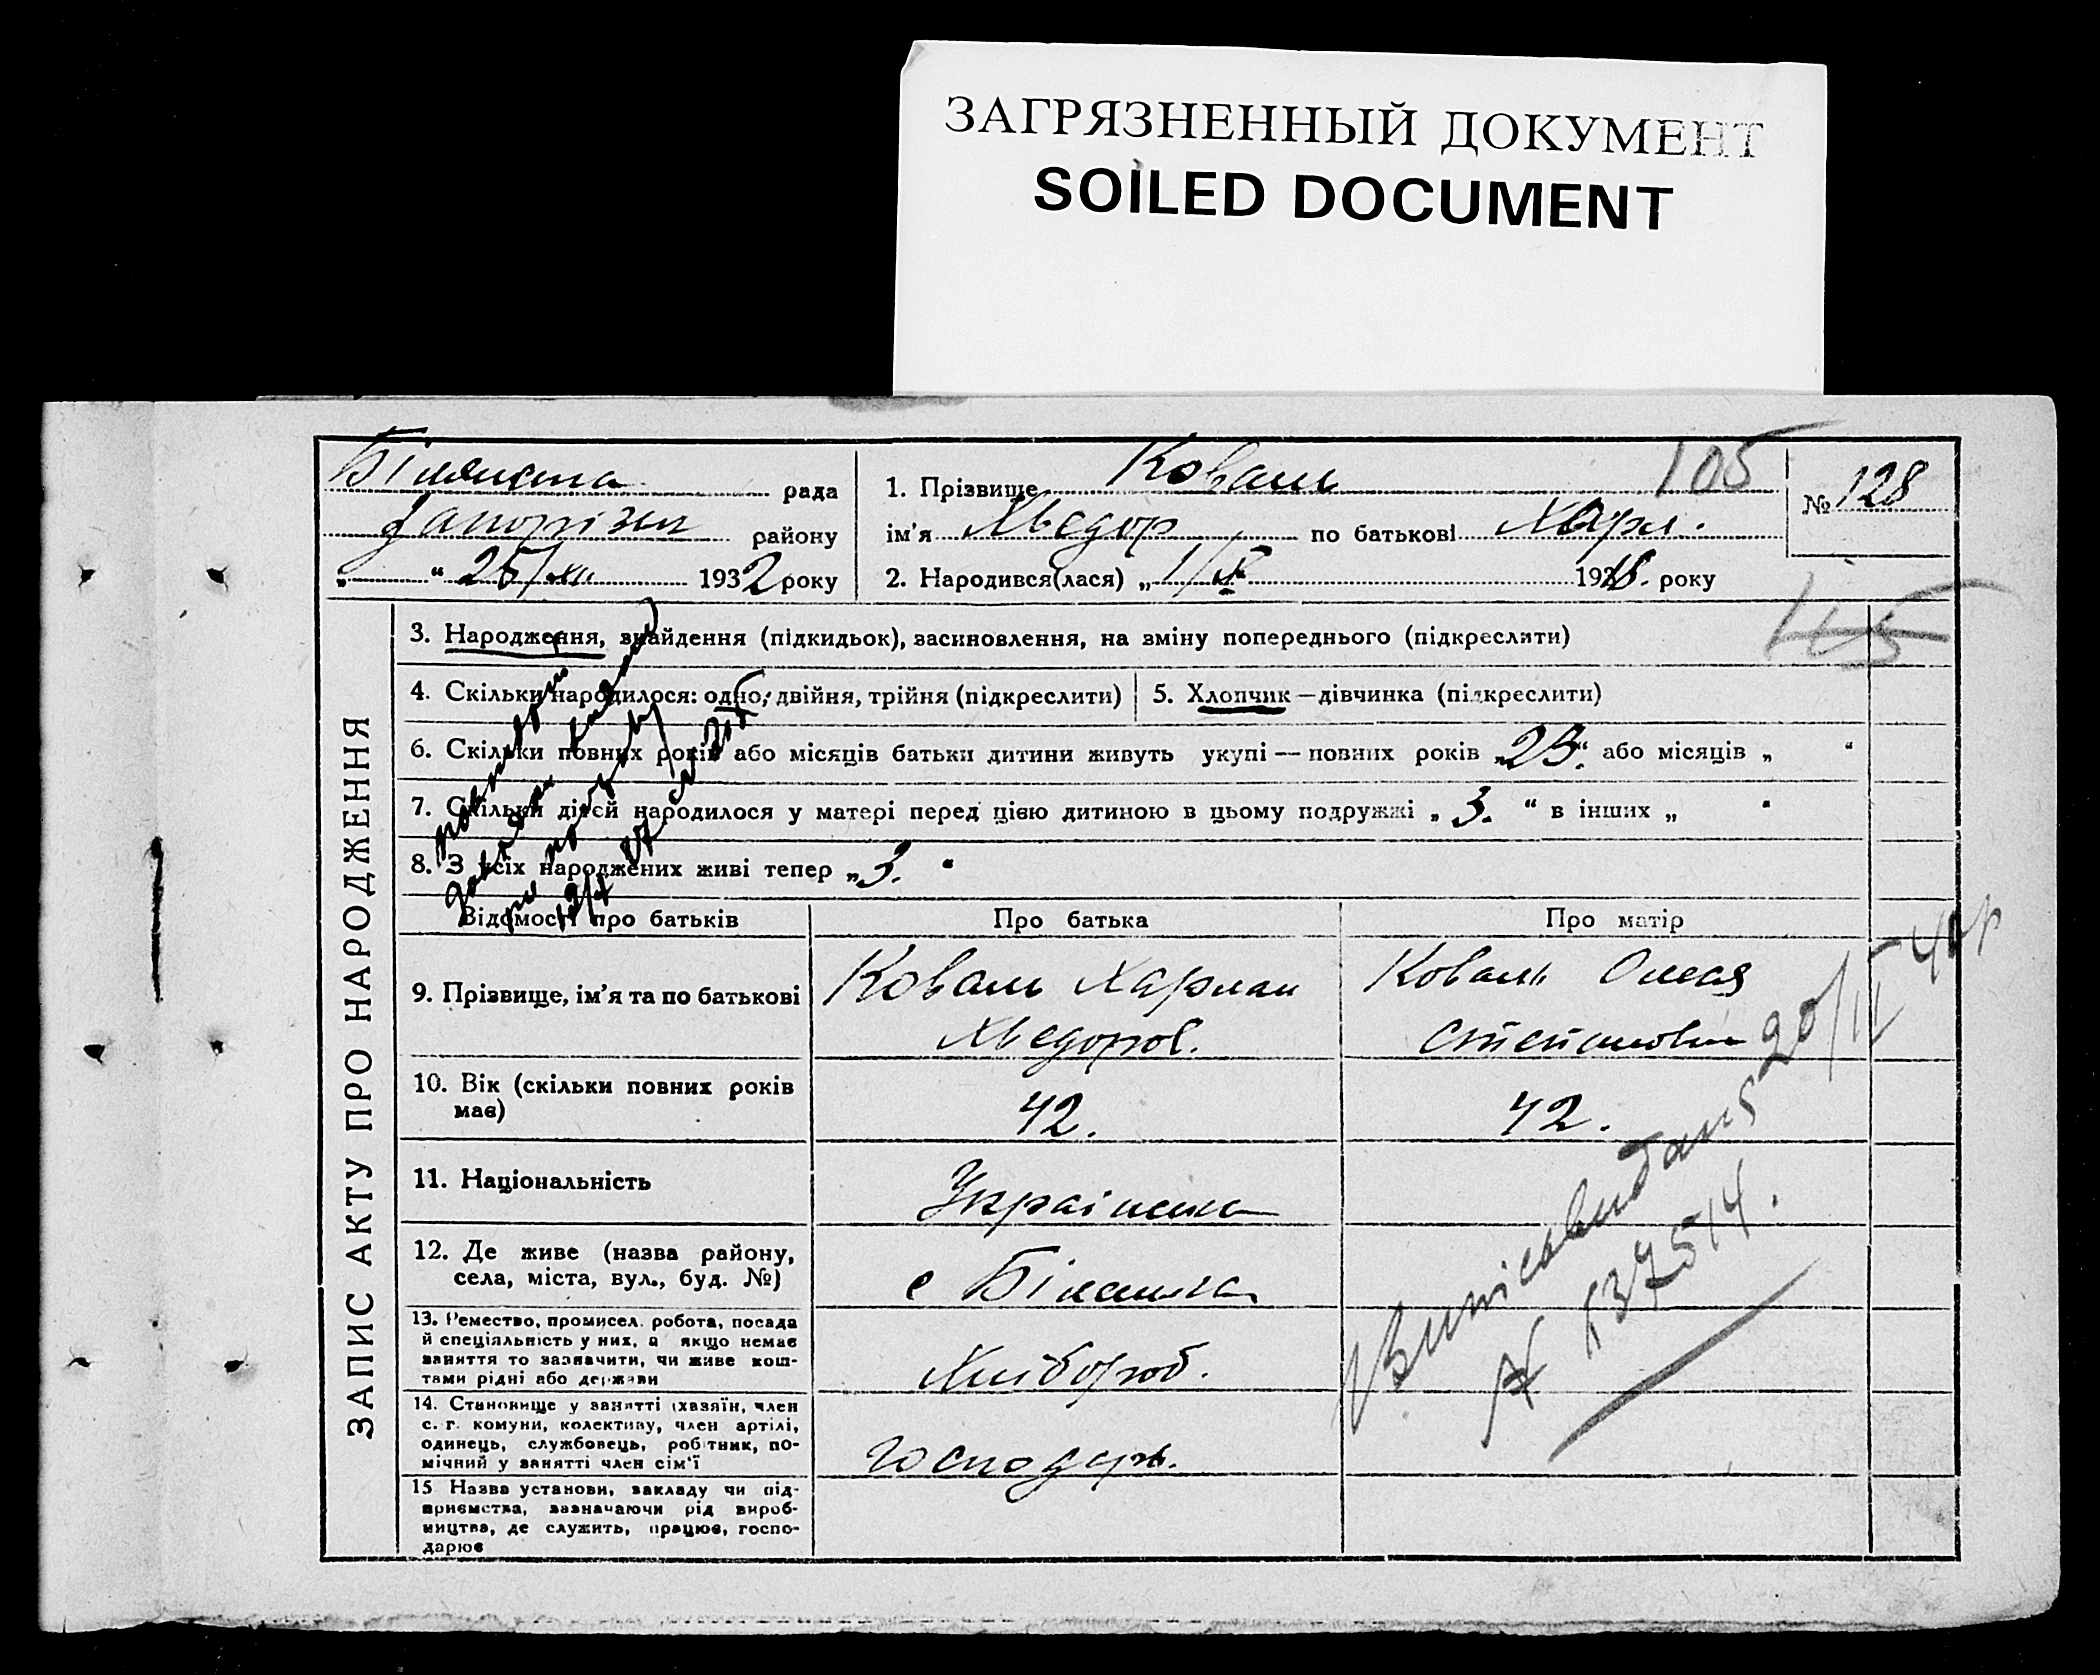 ЗАГРЯЗНЕННЫЙ ДОКУМЕНТ
SOILED DOCUMENT
рада
району
„ “ 25/XII 1932 року
1. Прізвище Коваль 105
ім'я Хведор по батькові Харл.
2. Народився(лася) „ 1/X 1918. року
№ 128
115
ЗАПИС АКТУ ПРО НАРОДЖЕННЯ
3. Народження, знайдення (підкидьок), засиновлення, на зміну попереднього (підкреслити)
4. Скільки народилося: одно, двійня, трійня (підкреслити)
5. Хлопчик—дівчинка (підкреслити)
6. Скільки повних років або місяців батьки дитини живуть укупі — повних років „23.“ або місяців „ “
7. Скільки дітей народилося у матері перед цією дитиною в цьому подружжі „3. “ в інших „ “
8. З усіх народжених живі тепер „3. “
Відомості про батьків
Про батька
Про матір
9. Прізвище, ім'я та по батькові
Коваль Харлан
Хведоров.
Коваль Олєна
Степановна
10. Вік (скільки повних років
має)
42.
42.
11. Національність
12. Де живе (назва району,
села, міста, вул., буд. №)
с
13. Ремество, промисел. робота, посада
й спеціяльність у них, а якщо немає
заняття то зазначити, чи живе кош-
тами рідні або держави
Хлібороб.
14. Становище у занятті (хазяїн, член
с. г. комуни, колективу, член артілі,
одинець, службовець, робітник, по-
мічний у занятті член сім'ї
Господарь.
15 Назва установи, закладу чи під-
приємства, зазначаючи рід вироб-
ництва, де служить, працює, госпо-
дарює
20/II 40 р
№ 137514.